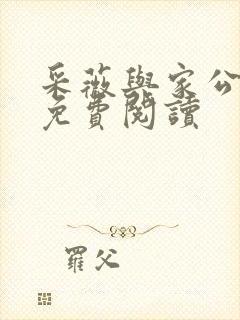 采薇與家公
免費閱讀
羅父